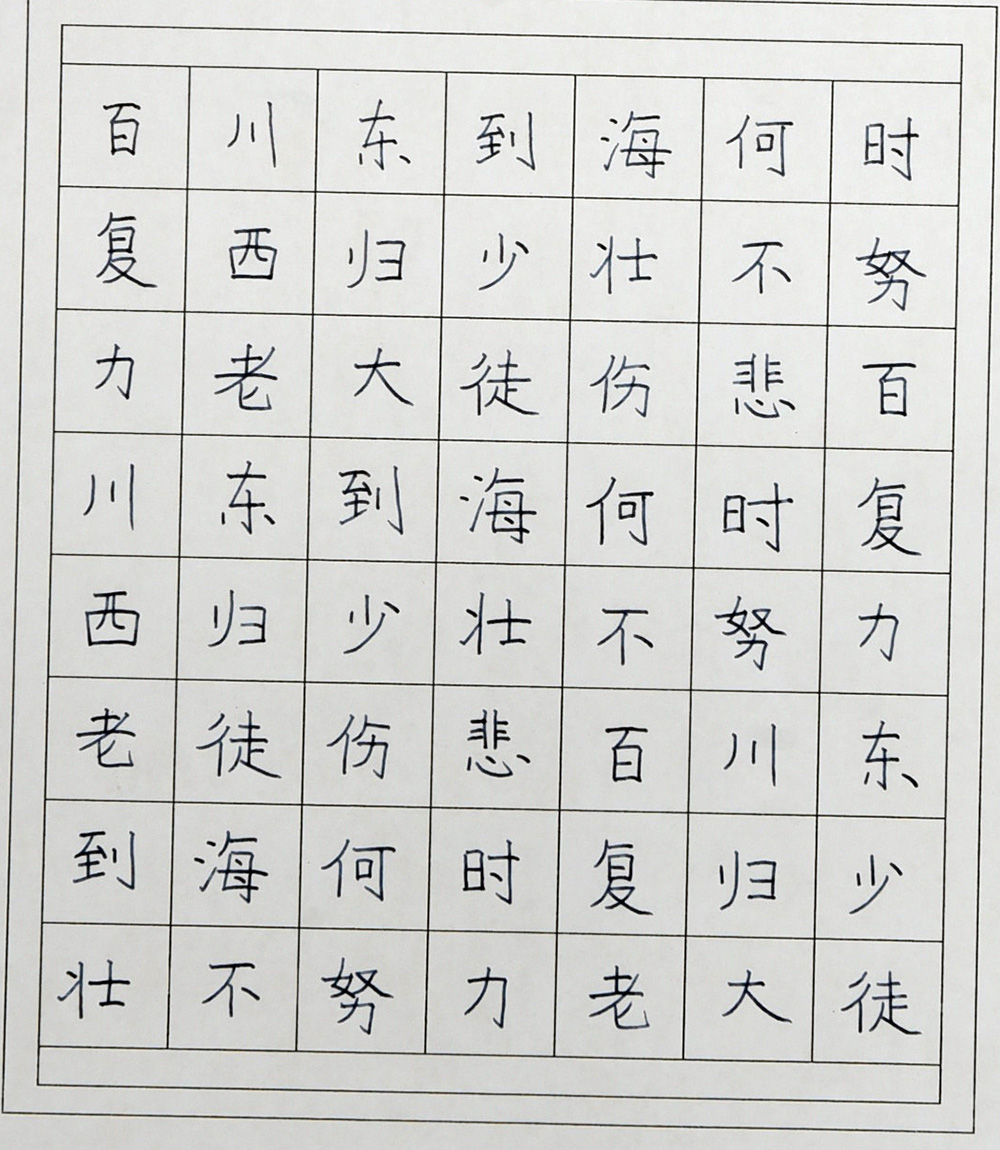 百川东到海何时
复西归少壮不努
力老大徒伤悲百
川东到海何时复
西归少壮不努力
老徒伤悲百川东
到海何时复归少
壮不努力老大徒